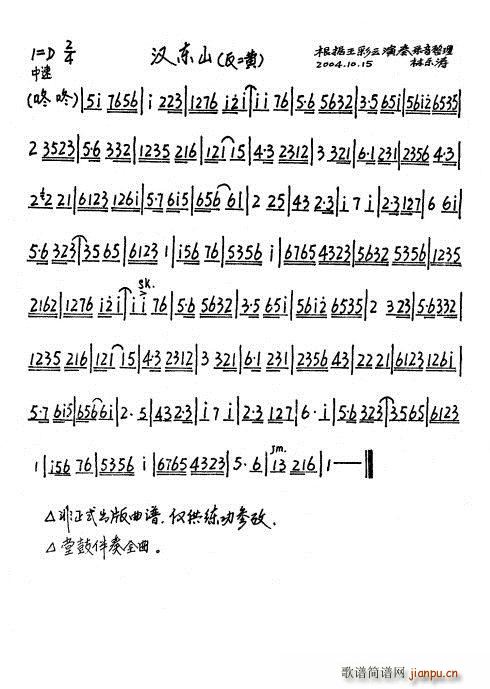 1=D 2/4 汉东山(反二黄) 根据王彩云演奏录音整理
中速 2004.10.15 林乐涛
(咚咚)|5i 7656|i 223|1276 i2i|i i 76|5·6 5632|3·5 65i|56i2 6535|
2 3523|5·6 332|1235 216|121 15|4·3 2312|3 321|6·1 231|2356 4·3|
2 2 21|6123 126i|5·7 6i5|656 6i|2 25|43 2·3|i 7 i|2·3 127|6 6i|
5·6 323|35 65|6123 1|i56 76|5356 i|6765 4323|5632 5356|1235
sk.
2162|1276 i2i|i i 76|5·6 5632|3·5 65i|56i2 6535|2 323|5·6332|
1235 216|121 15|4·3 2312|3 321|6·1 231|2356 43|22 21|6123 126i|
5·7 6i5|656 6i|2·5|43 2·3|i 7 i|2·3 127|6·i|5·6 323|35 65|6123
jm.
1|i56 76|5356 i|6765 4323|5·6|13 216|1——‖
△非正式出版曲谱,仅供练功参改.
△堂鼓伴奏全曲。
歌谱简谱网
jianpu.cn